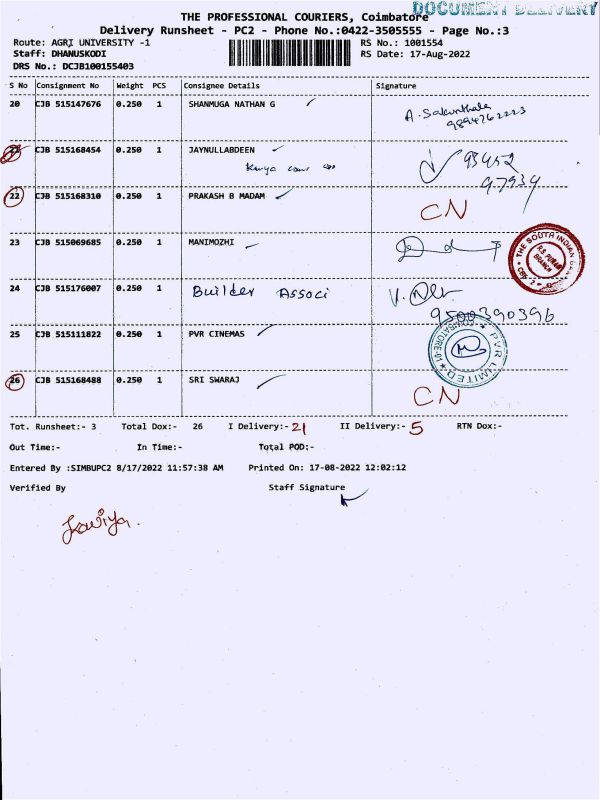 DOCUMENT DELIVERY
THE PROFESSIONAL COURIERS, Coimbatore
Delivery Runsheet - PC2 - Phone No.:0422-3505555 - Page No.:3
Route: AGRI UNIVERSITY -1 RS No.: 1001554
Staff: DHANUSKODI RS Date: 17-Aug-2022
DRS No.: DCJB100155403
S No Consignment No Weight PCS Consignee Details Signature
20 CJB 515147676 0.250 1 SHANMUGA NATHAN G A. Sakunthala
9894762223
21 CJB 515168454 0.250 1 JAYNULLABDEEN 93452
97934
22 CJB 515168310 0.250 1 PRAKASH B MADAM CN
23 CJB 515069685 0.250 1 MANIMOZHI
THE SOUTH INDIAN
R.S. PURAM
BRANCH
24 CJB 515176007 0.250 1 Builder Associ
9500390396
25 CJB 515111822 0.250 1 PVR CINEMAS
PVR LIMITED COIMBATORE-01
26 CJB 515168488 0.250 1 SRI SWARAJ CN
Tot. Runsheet:- 3 Total Dox:- 26 I Delivery:- 21 II Delivery:- 5 RTN Dox:-
Out Time:- In Time:- Total POD:-
Entered By :SIMBUPC2 8/17/2022 11:57:38 AM Printed On: 17-08-2022 12:02:12
Verified By Staff Signature